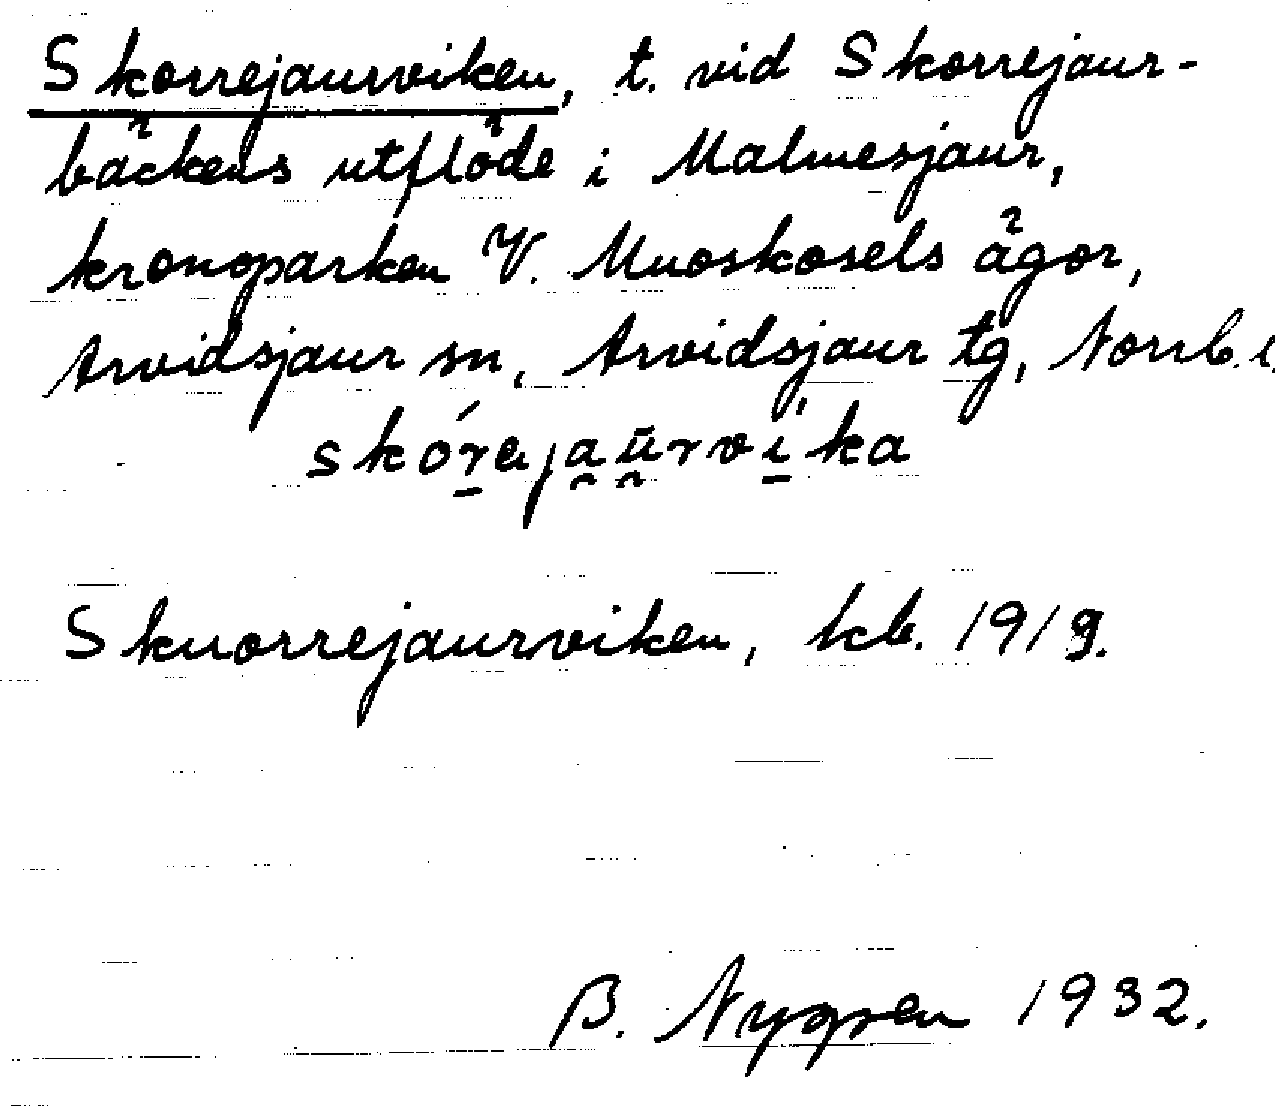 Skorrejaurviken, t. vid Skorrejaur-
bäckens utflöde i Malmesjaur,
kronoparken V. Muoskosels ägor,
Arvidsjaur sn, Arvidsjaur tg, Norrb. l.
skórejaūrvika
Skuorrejaurviken, kb. 1919.
B. Nygren 1932.